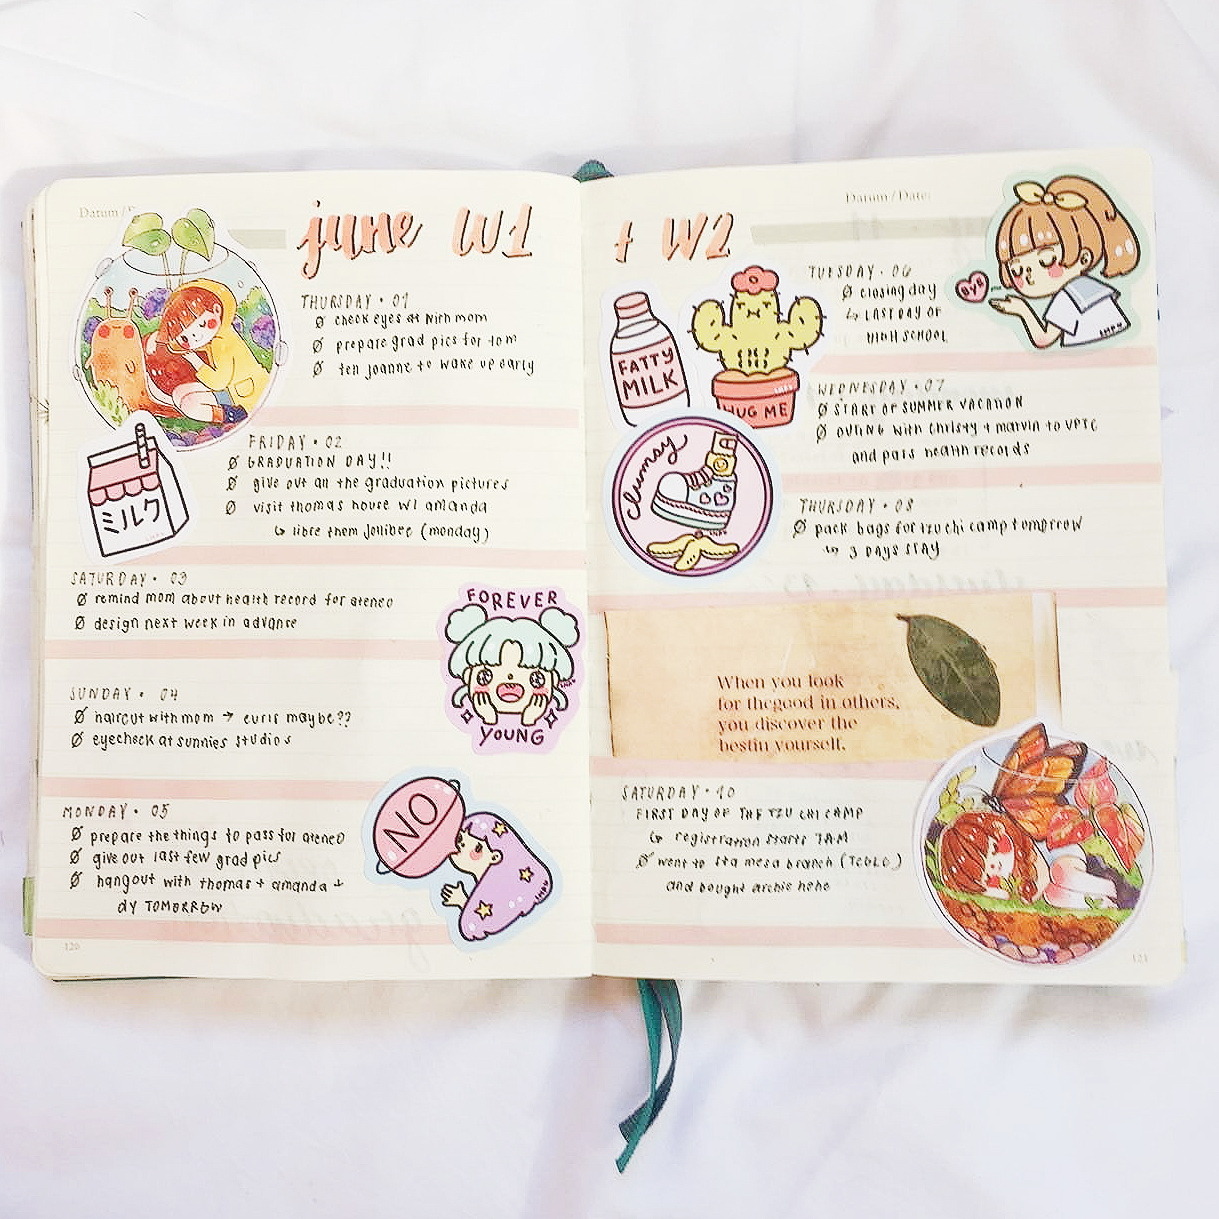 Datum /
june W1
THURSDAY • 01
Ø check eyes at with mom
Ø prepare grad pics for tom
Ø tell joanne to wake up early
FRIDAY • 02
Ø GRADUATION DAY!!
Ø give out all the graduation pictures
Ø visit thomas house w/ amanda
↳ libre them jollibee (monday)
ミルク
SATURDAY • 03
Ø remind mom about health record for ateneo
Ø design next week in advance
FOREVER
YOUNG
SUNDAY • 04
Ø haircut with mom → curls maybe??
Ø eyecheck at sunnies studios
MONDAY • 05
Ø prepare the things to pass for ateneo
Ø give out last few grad pics
Ø hangout with thomas + amanda +
dy TOMORROW
NO
120
Datum / Date:
+ W2
TUESDAY • 06
Ø closing day
↳ LAST DAY OF
HIGH SCHOOL
BYE
FATTY
MILK
HUG ME
WEDNESDAY • 07
Ø START OF SUMMER VACATION
Ø outing with christy + marvin to
and pass health records
clumsy
THURSDAY • 08
Ø pack bags for tzu chi camp tomorrow
↳ 3 DAYS STAY
When you look
for thegood in others,
you discover the
bestin yourself.
SATURDAY • 10
FIRST DAY OF THE TZU CHI CAMP
↳ registration starts 7AM
Ø went to sta mesa branch
and bought archie hehe
121